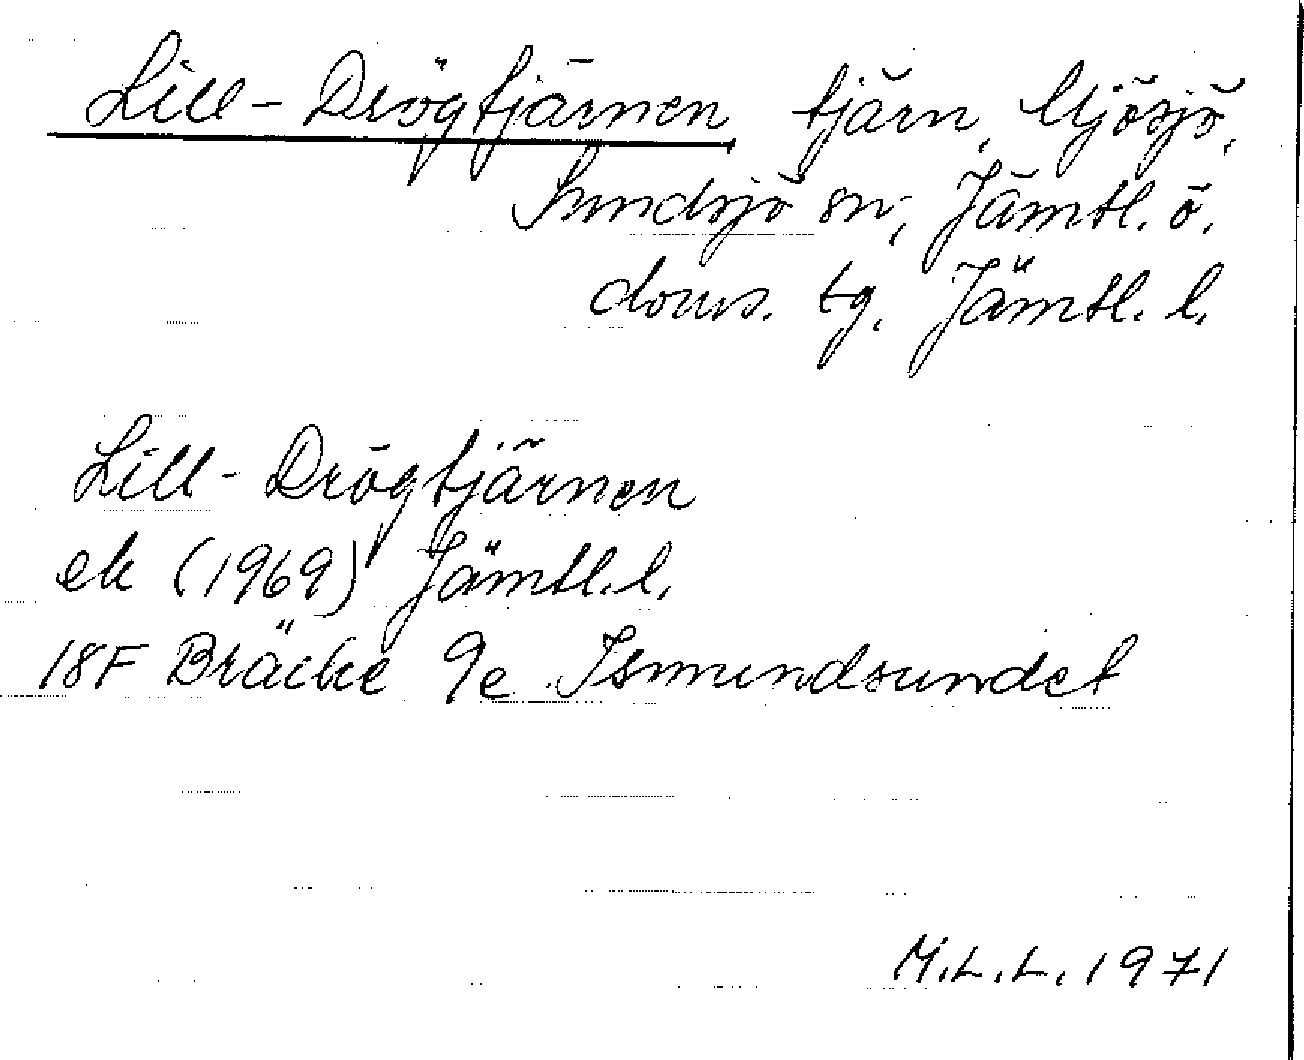 Lill-Drögtjärnen, tjärn, Mjösjö,
Sundsjö sn, Jämtl. ö.
doms. tg. Jämtl. l.
Lill-Drögtjärnen
ek (1969) Jämtl. l.
18F Bräcke 9e Ismundsundet
M.L.L. 1971